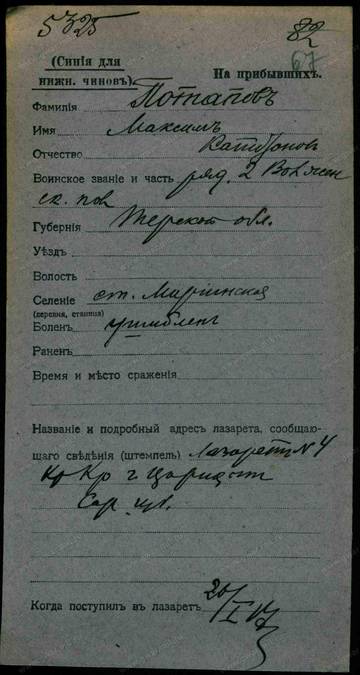 5325
82
67
(Синія для
нижн. чиновъ).
На прибывшихъ.
Фамилія Потаповъ
Имя Максимъ
Отчество
Воинское званіе и часть ряд. 2
ск. пов
Губернія Терской обл.
Уѣздъ
Волость
Селеніе ст. Маріинская
(деревня, станица)
Боленъ ушибленъ
Раненъ
Время и мѣсто сраженія
Названіе и подробный адресъ лазарета, сообщаю-
щаго свѣдѣнія (штемпель) Лазаретъ № 4
Кр Кр г Царицынъ
Сар.
Когда поступилъ въ лазаретъ 20/I 17